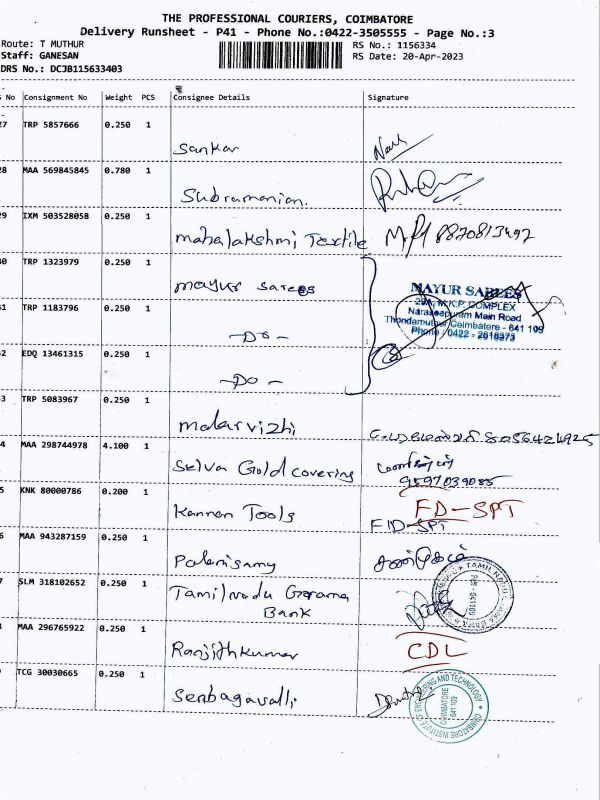 THE PROFESSIONAL COURIERS, COIMBATORE
Delivery Runsheet - P41 - Phone No.:0422-3505555 - Page No.:3
Route: T MUTHUR
RS No.: 1156334
Staff: GANESAN
RS Date: 20-Apr-2023
DRS No.: DCJB115633403
No Consignment No Weight PCS Consignee Details Signature
27 TRP 5857666 0.250 1
Sankar
28 MAA 569845845 0.780 1
Subramanian.
29 IXM 503528058 0.250 1
mahalakshmi Textile 8870813492
30 TRP 1323979 0.250 1
mayur sarees
MAYUR SAREES
29A, M.K.P. COMPLEX
Naraseepuram Main Road
Thondamuthur Coimbatore - 641 109
Phone : 0422 - 2618373
31 TRP 1183796 0.250 1
-DO-
32 EDQ 13461315 0.250 1
-DO-
33 TRP 5083967 0.250 1
malarvizhi
34 MAA 298744978 4.100 1
Selva Gold covering
9597039085
35 KNK 80000786 0.200 1
Kannan Tools FD-SPT
FID-SPT
36 MAA 943287159 0.250 1
Palanisamy
37 SLM 318102652 0.250 1
Tamilnadu Grama
Bank
MAA 296765922 0.250 1
Ranjithkumar CDL
TCG 30030665 0.250 1
Senbagavalli
COIMBATORE INSTITUTE OF ENGINEERING AND TECHNOLOGY
COIMBATORE
641 109